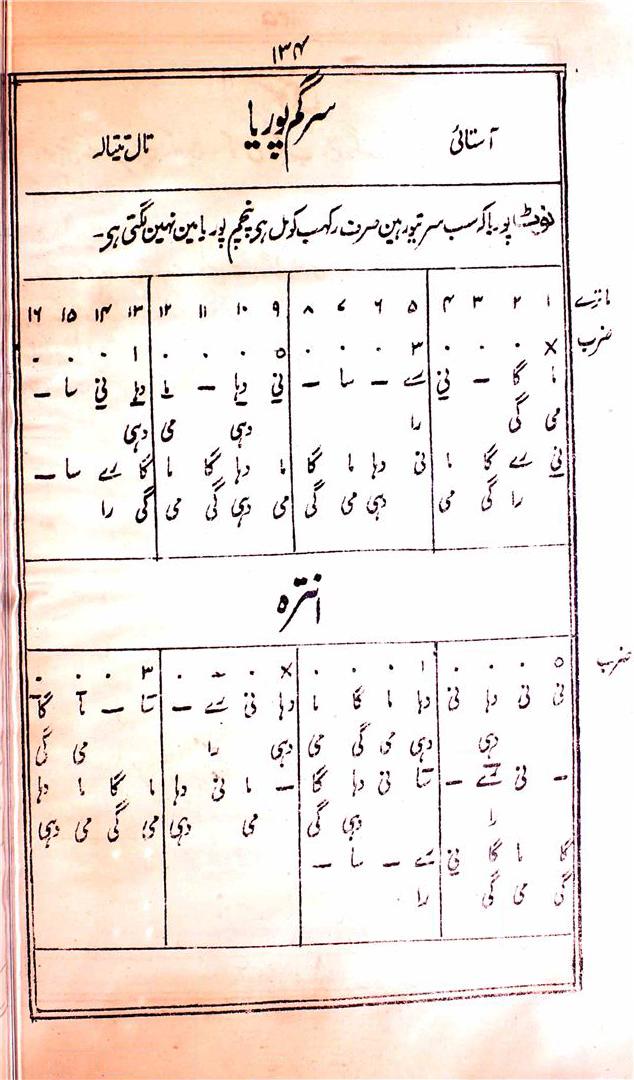 ۱۳۴
آستائی سرگم پوریا تال تیتالہ
نوٹ پوریا کہ سب سر تیور ہین صرف رکھب کومل ہی پنچم پوریا مین نہین لگتی ہی۔
ماترے ۱ ۲ ۳ ۴ ۵ ۶ ۷ ۸ ۹ ۱۰ ۱۱ ۱۲ ۱۳ ۱۴ ۱۵ ۱۶
ضرب × ۰ ۰ ۰ ۳ ۰ ۰ ۰ ٥ ۰ ۰ ۰ ۱ ۰ ۰ ۰
ما گا – نی رے – سا – نی دہا – ما دہا نی سا –
می گی را دہی می دہی
نی رے گا ما نی دہا ما گا ما دہا گا ما گا رے سا –
را گی می دہی می گی می دہی گی می گی را
انترہ
ضرب ٥ ۰ ۰ ۰ ۱ ۰ ۰ ۰ × ۰ ۰ ۰ ۳ ۰ ۰ ۰
نی نی دہا نی دہا ما گا ما دہا نی رے – سا – ما گا
دہی دہی می گی می دہی را می گی
– نی رے – سا نی دہا گا – ما نی دہا ما گا ما دہا
را دہی گی می دہی می گی می دہی
گا ما گا نی رے – سا –
گی می گی را